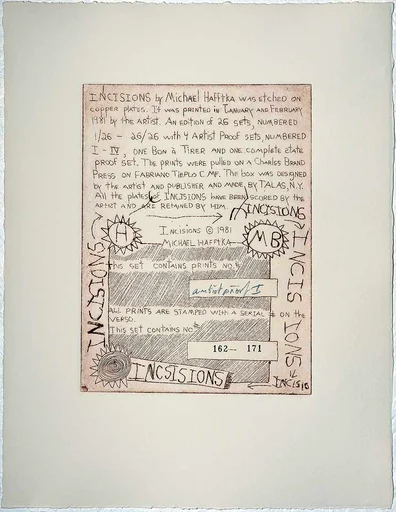 INCISIONS by Michael Hafftka was etched on
copper plates. It was printed in January and February
1981 by the artist. An edition of 26 sets, numbered
1/26 - 26/26 with 4 Artist Proof sets, numbered
I - IV, one Bon à Tirer and one complete state
proof set. The prints were pulled on a Charles Brand
Press on Fabriano Tieplo C.M.F. The box was designed
by the artist and publisher and made by TALAS, N.Y.
All the plates of INCISIONS have been scored by the
artist and are retained by him.
INCISIONS
H
INCISIONS © 1981
MICHAEL HAFFTKA
MB
INCISIONS
INCISIONS
This set contains prints no.
artist proof I
ALL PRINTS ARE STAMPED WITH A SERIAL # ON THE
VERSO.
This set contains no.
162— 171
INCSISIONS
INCISIO